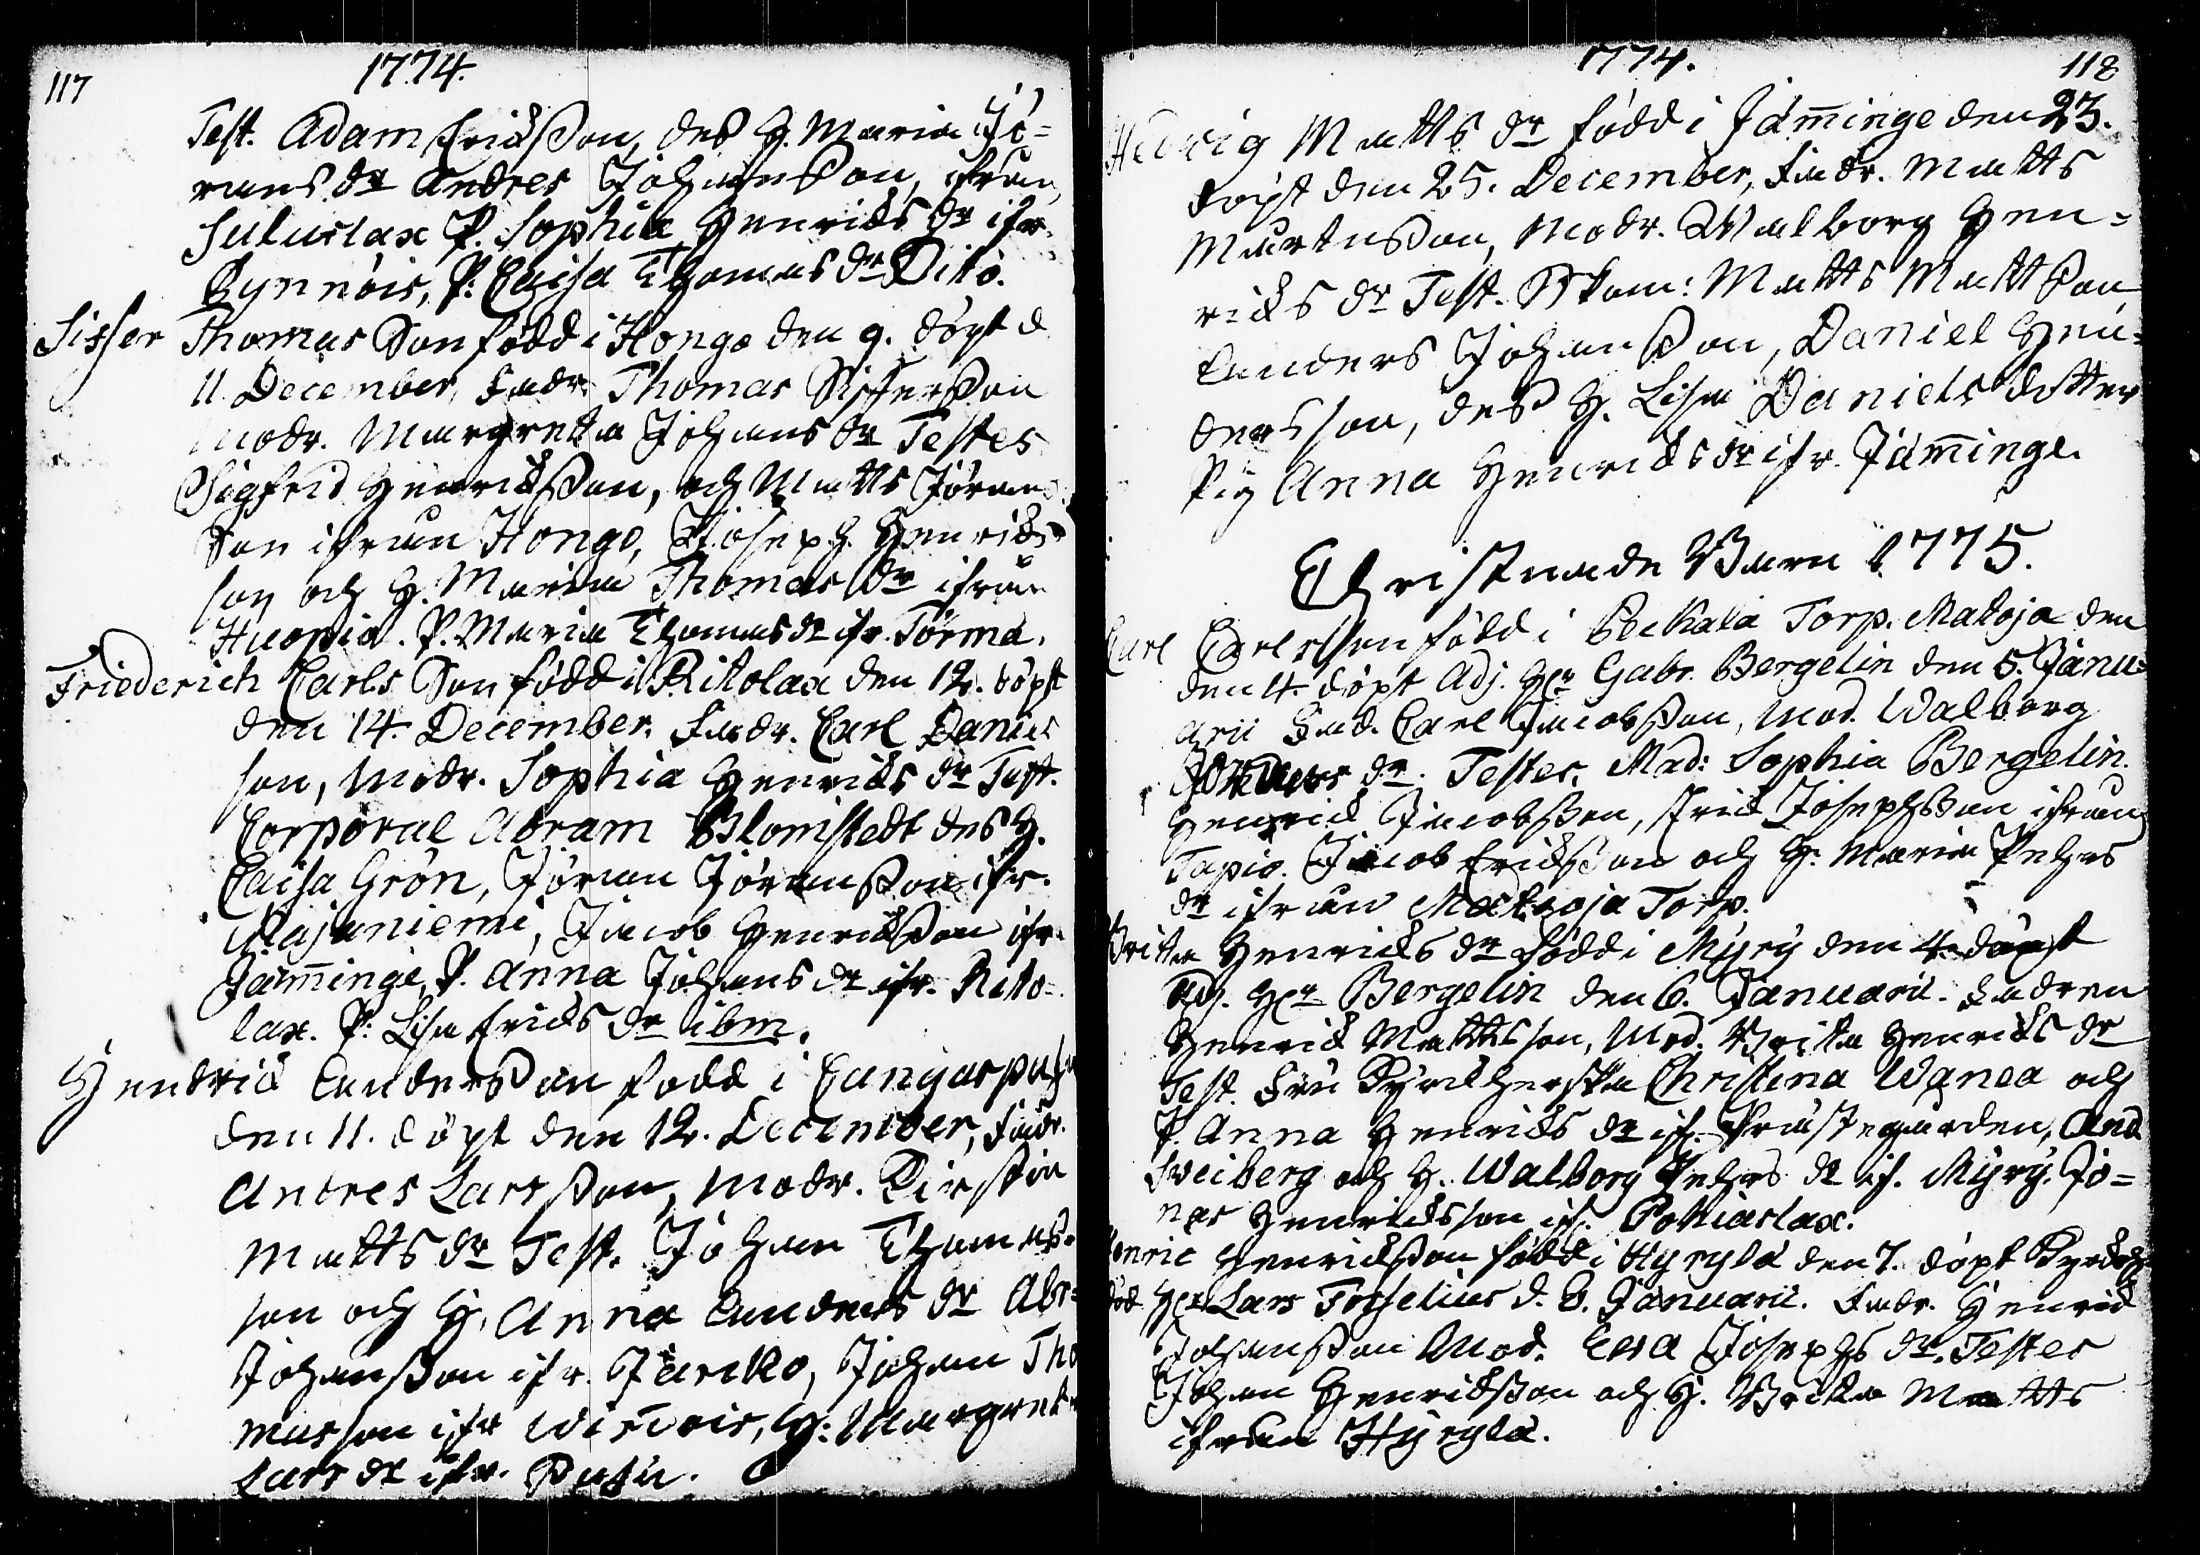 117
1774.
Test. Adam Erickßon, des H. Maria Jö=
rans dr Andres Johansson, ifrån
Suluslax P. Sophia Henrics dr ifr.
Rynnöis, P: Caisa Thomas dr Dito.
Sisfer Thomas Son född i Hongo den 9. döpt d
11 December, Fadr. Thomas Sisferßon
modr. Margreta Johans dr Testes
Sigfrid Henricßon, och Matts Jörans
Son ifrån Hongo, Joseph Henrics
son och H. Maria Thomas dr ifrån
Huopia. P. Maria Thomas dr ifr. Törmä.
Friederich Carls Son född i Ritolax den 12. döpt
den 14. December. Fadr. Carl Daniels
son, Modr. Sophia Henrics dr Test.
Corporal Abram Blomstedt des H.
Caisa Grön, Jöran Jöransson ifr.
Majaniemi, Jacob Henricßon ifr.
Jäm̄inge, P. Anna Johans dr ifr. Rito=
lax. P: Lisa Erics dr ibm.
Hendric Andersson född i
den 11. döpt den 12. December, Fadr.
Andres Larsßon, Modr. Kirstin
Matts dr Test. Johan Thomas
son och H. Anna Anders dr Abr=
Johansßon ifr. Jariko, Johan Tho
masson ifr H: Margreta
Lars dr ifr.
1774.
118
Hedvig Matts dr född i Jäm̄inge den 23.
döpt den 25. December, Fadr. Matts
Martinßon, Modr. Walborg Hen=
rics dr Test. Skom: Matts Mattßon
Anders Johanßon, Daniel Hen=
dersson, des H. Lisa Daniels dotter
Pig Anna Henrics dr ifr. Jäm̄inge.
Christnade Barn 1775.
Carl Carlsson född i Peckala Torp. Matoja den
den 4. döpt Adj. Hr Gabr. Bergelin den 5. Janu=
arii Fad. Carl Jacobßon, Mod. Walborg
dr. Testes. Mad: Sophia Bergelin.
Henric Jacobßon, Eric Josephßon ifrån
Tapio. Jacob Ericßon och H. Maria Pehrs
dr ifrån Matoja Torp.
Britta Henrics dr född i Myry den 4. döpt
Adj. Hr Bergelin den 6. Januarii. Fadren
Henric Mattsson, Mod. Brita Henrics dr
Test. Fru Kyrckherska Christina Wanæa och
P. Anna Henrics dr if. Prästegården, And
Sveiberg och H. Walborg Pehrs dr if. Myry. Jo=
nas Henricsson if. Pohiaslax.
Henric Henricßon född i Hyrylä den 7. döpt Kyrckoh
död. Hr Lars Forselius d. 8. Januarii. Fadr. Henric
Johanßon Mod. Eva Josephs dr. Testes
Johan Henricßon och H. Brita Matts
ifrån Hyrylä.